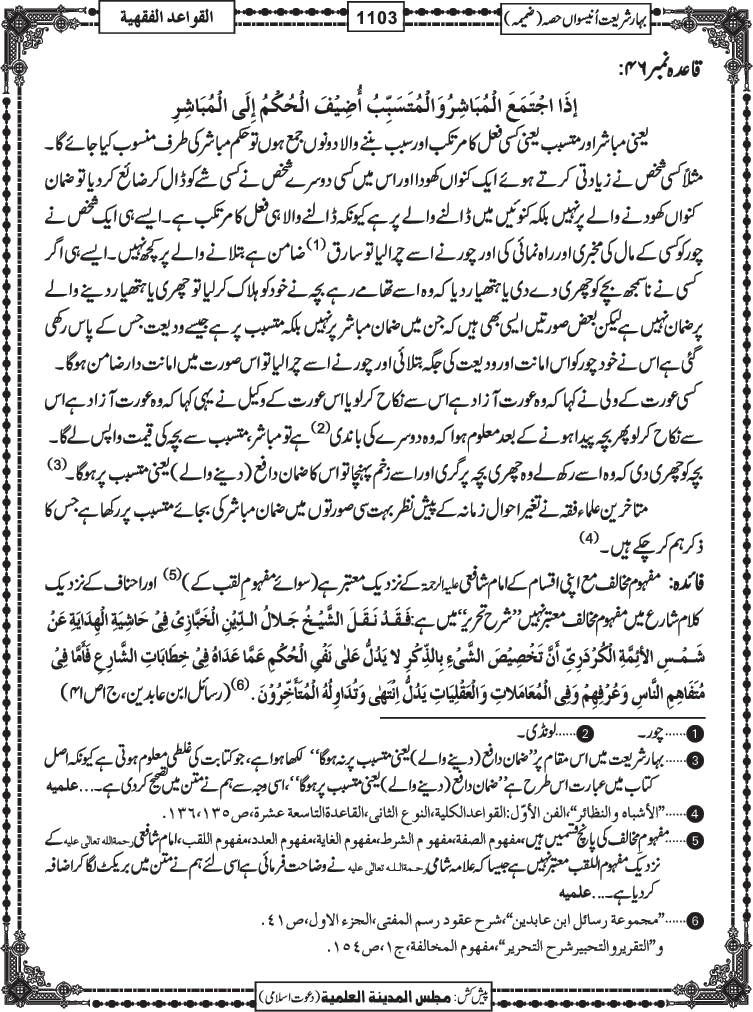 بہار شریعت اُنیسواں حصہ (ضمیمہ)
1103
القواعد الفقھیة
قاعدہ نمبر ۴۶:
إذَا اجْتَمَعَ الْمُبَاشِرُ وَالْمُتَسَبِّبُ أُضِيْفَ الْحُكْمُ إِلَى الْمُبَاشِرِ
یعنی مباشر اور متسبب یعنی کسی فعل کا مرتکب اور سبب بننے والا دونوں جمع ہوں تو حکم مباشر کی طرف منسوب کیا جائے گا۔
مثلاً کسی شخص نے زیادتی کرتے ہوئے ایک کنواں کھودا اور اس میں کسی دوسرے شخص نے کسی شے کو ڈال کر ضائع کردیا تو ضمان
کنواں کھودنے والے پر نہیں بلکہ کنوئیں میں ڈالنے والے پر ہے کیونکہ ڈالنے والا ہی فعل کا مرتکب ہے۔ ایسے ہی ایک شخص نے
چور کو کسی کے مال کی مخبری اور راہ نمائی کی اور چور نے اسے چرالیا تو سارق (1) ضامن ہے بتلانے والے پر کچھ نہیں۔ ایسے ہی اگر
کسی نے ناسمجھ بچے کو چھری دے دی یا ہتھیار دیا کہ وہ اسے تھامے رہے بچہ نے خود کو ہلاک کرلیا تو چھری یا ہتھیار دینے والے
پر ضمان نہیں ہے لیکن بعض صورتیں ایسی بھی ہیں کہ جن میں ضمان مباشر پر نہیں بلکہ متسبب پر ہے جیسے ودیعت جس کے پاس رکھی
گئی ہے اس نے خود چور کو اس امانت اور ودیعت کی جگہ بتلائی اور چور نے اسے چرالیا تو اس صورت میں امانت دار ضامن ہوگا۔
کسی عورت کے ولی نے کہا کہ وہ عورت آزاد ہے اس سے نکاح کرلو یا اس عورت کے وکیل نے یہی کہا کہ وہ عورت آزاد ہے اس
سے نکاح کرلو پھر بچہ پیدا ہونے کے بعد معلوم ہوا کہ وہ دوسرے کی باندی (2) ہے تو مباشر، متسبب سے بچہ کی قیمت واپس لے گا۔
بچہ کو چھری دی کہ وہ اسے رکھ لے وہ چھری بچہ پر گری اور اسے زخم پہنچا تو اس کا ضمان دافع (دینے والے) یعنی متسبب پر ہوگا۔ (3)
متاخرین علماء فقہ نے تغیر احوال زمانہ کے پیش نظر بہت سی صورتوں میں ضمان مباشر کی بجائے متسبب پر رکھا ہے جس کا
ذکر ہم کرچکے ہیں۔ (4)
فائدہ: مفہوم مخالف مع اپنی اقسام کے امام شافعی علیہ الرحمۃ کے نزدیک معتبر ہے (سوائے مفہوم لقب کے) (5) اور احناف کے نزدیک
کلام شارع میں مفہوم مخالف معتبر نہیں "شرح تحریر" میں ہے: فَقَدْ نَقَلَ الشَّيْخُ جَلَالُ الدِّيْنِ الْخَبَّازِيُّ فِيْ حَاشِيَةِ الْهِدَايَةِ عَنْ
شَمْسِ الأَئِمَّةِ الْكُرْدَرِيِّ أَنَّ تَخْصِيْصَ الشَّيْءِ بِالذِّكْرِ لَا يَدُلُّ عَلٰى نَفْيِ الْحُكْمِ عَمَّا عَدَاهُ فِيْ خِطَابَاتِ الشَّارِعِ فَأَمَّا فِيْ
مُتَفَاهِمِ النَّاسِ وَعُرْفِهِمْ وَفِي الْمُعَامَلَاتِ وَالْعَقْلِيَاتِ يَدُلُّ اِنْتَهٰى وَتُدَاوِلُهُ الْمُتَأَخِّرُوْنَ. (6) (رسائل ابن عابدین، ج۱ص۴۱)
1 ......چور۔ 2 ......لونڈی۔
3 ......بہارشریعت میں اس مقام پر "ضمان دافع (دینے والے) یعنی متسبب پر نہ ہوگا" لکھا ہوا ہے، جو کتابت کی غلطی معلوم ہوتی ہے کیونکہ اصل
کتاب میں عبارت اس طرح ہے "ضمان دافع (دینے والے) یعنی متسبب پر ہوگا"، اسی وجہ سے ہم نے متن میں تصحیح کردی ہے۔...علمیہ
4 ......"الأشباه و النظائر"، الفن الأوّل: القواعد الكلية، النوع الثاني، القاعدة التاسعة عشرة، ص ١٣٥، ١٣٦.
5 ......مفہوم مخالف کی پانچ قسمیں ہیں، مفہوم الصفة، مفہوم الشرط، مفہوم الغاية، مفہوم العدد، مفہوم اللقب، امام شافعی رحمة الله تعالى عليه کے
نزدیک مفہوم اللقب معتبر نہیں ہے جیسا کہ علامہ شامی رحمة الله تعالى عليه نے وضاحت فرمائی ہے اسی لئے ہم نے متن میں بریکٹ لگا کر اضافہ
کردیا ہے۔...علمیہ
6 ......"مجموعة رسائل ابن عابدين"، شرح عقود رسم المفتي، الجزء الاول، ص ٤١.
و "التقرير والتحبير شرح التحرير"، مفهوم المخالفة، ج١، ص ١٥٤.
پیش کش: مجلس المدینة العلمیة (دعوت اسلامی)